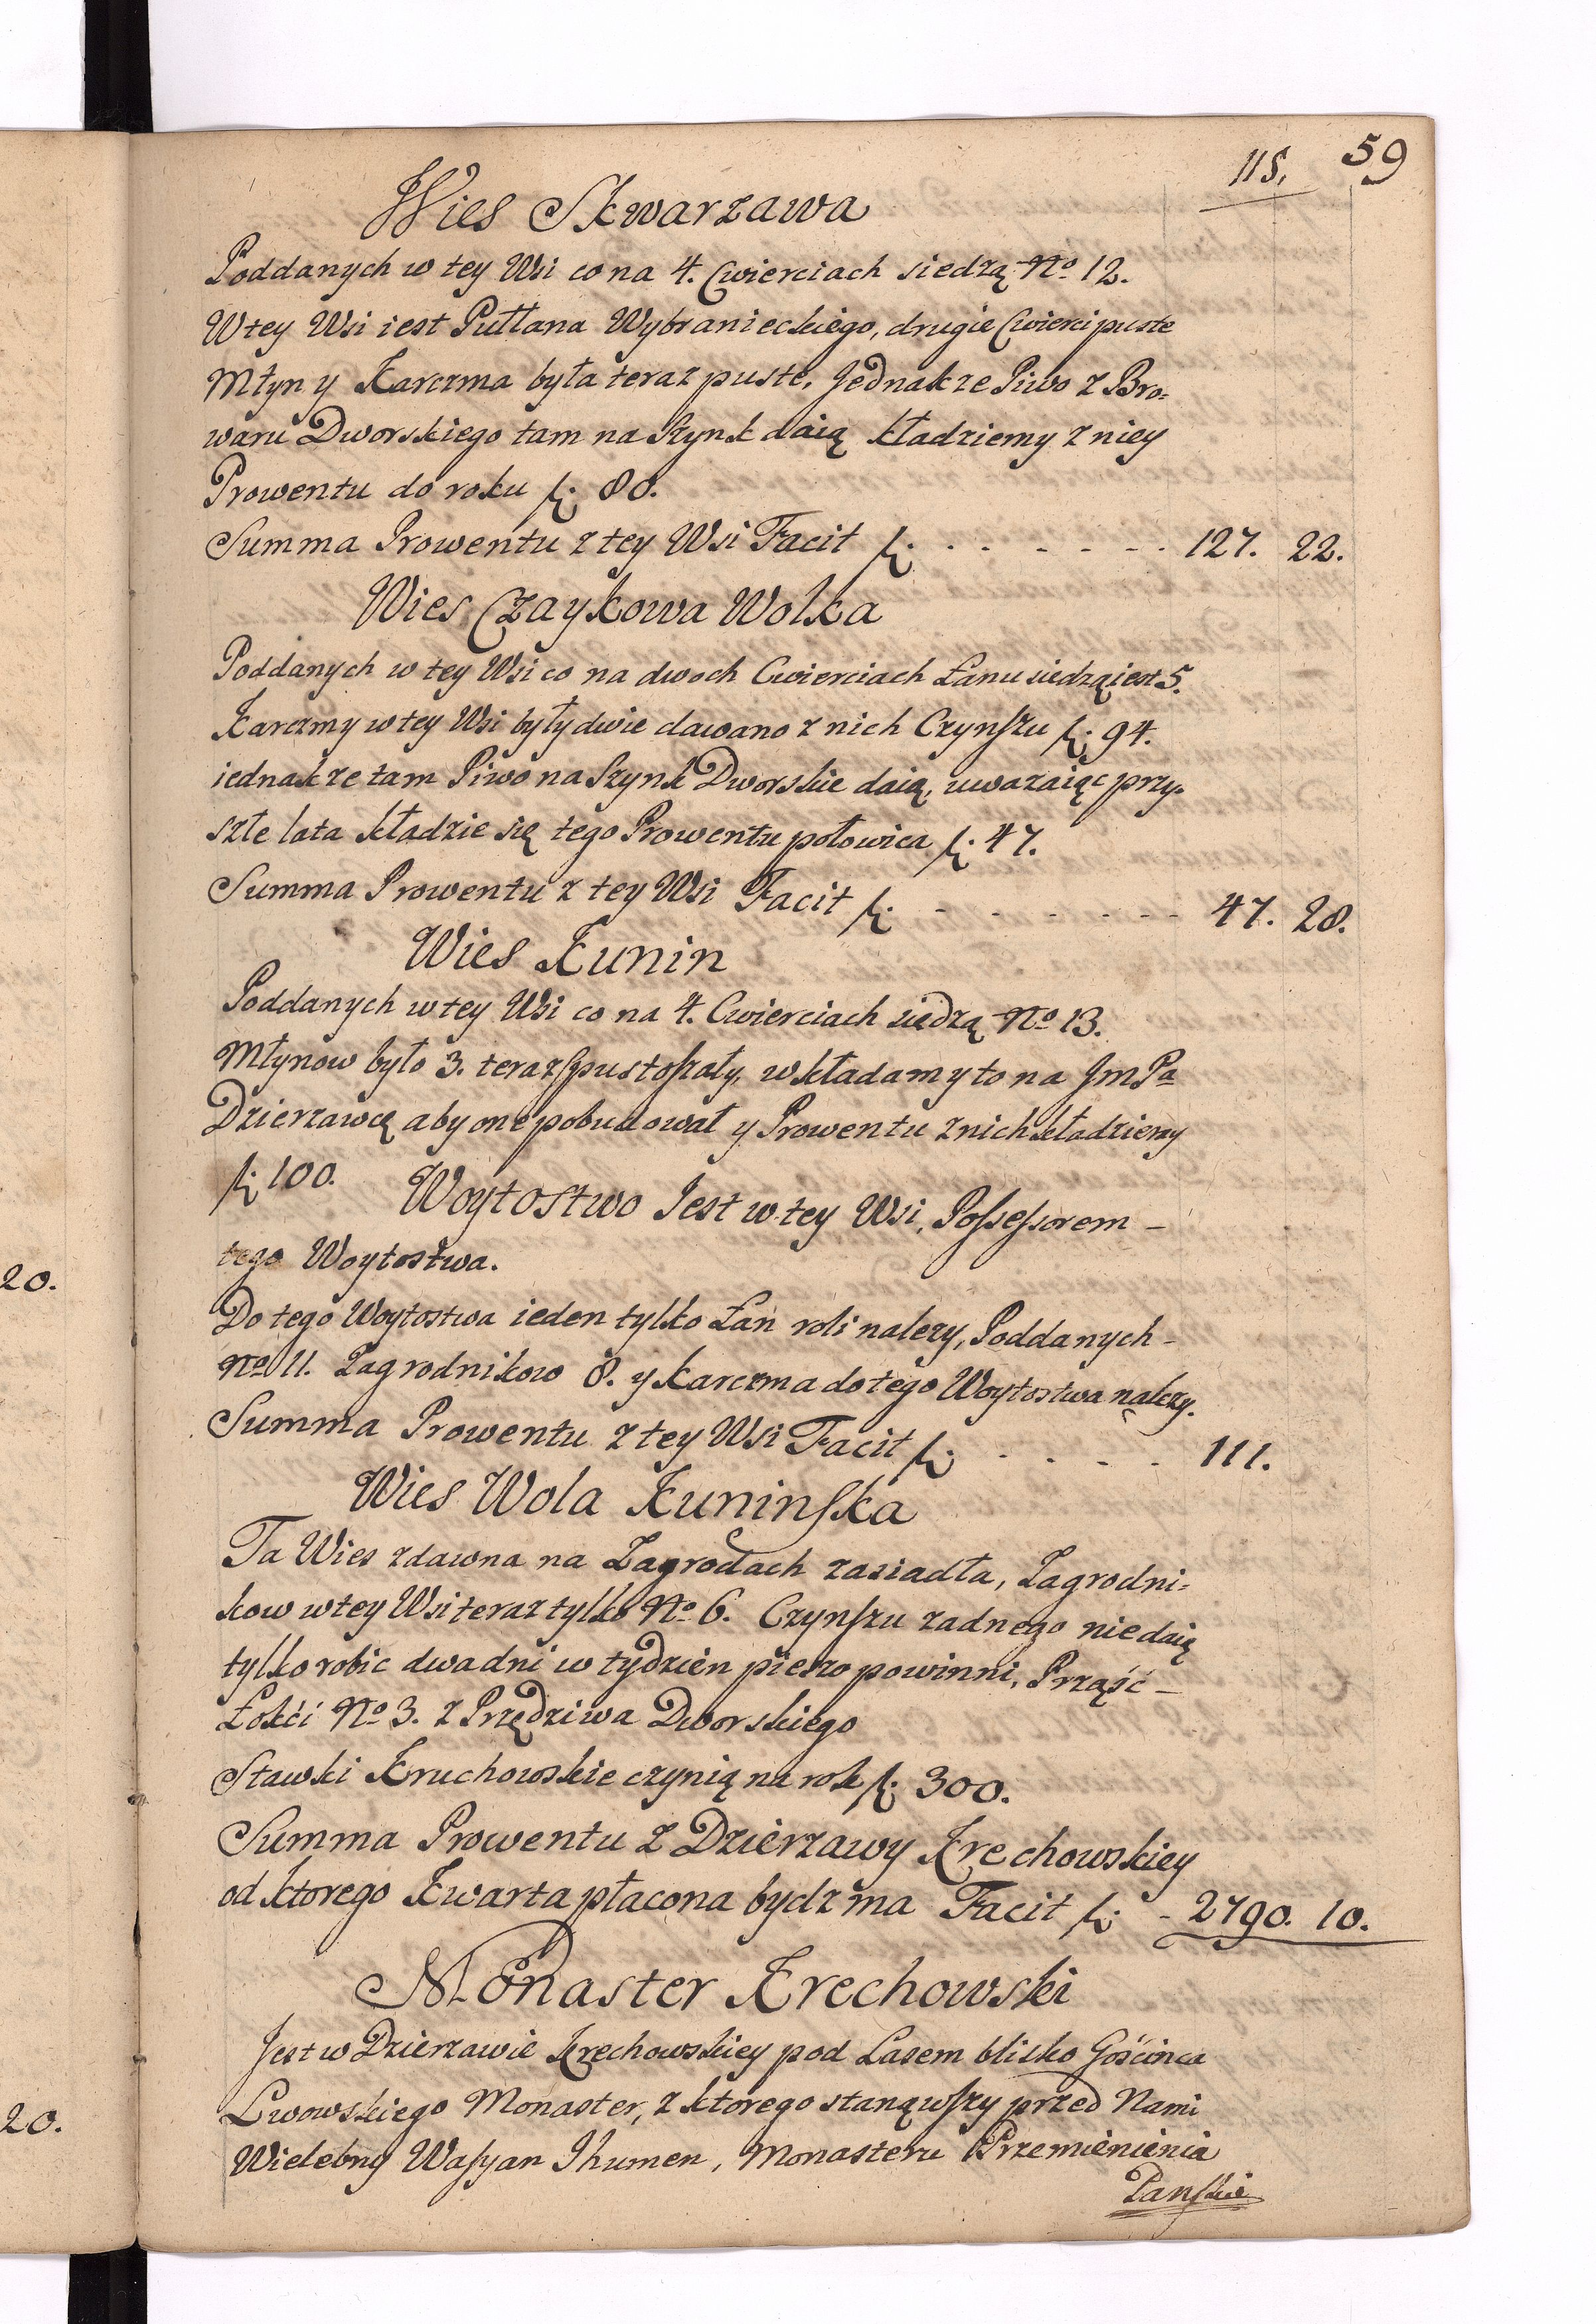 115. 59
Wies Skwarzawa
Poddanych w tey Wsi co na 4. Cwierciach siedzą No 12.
W tey Wsi iest Pułłana Wybranieckiego, drugie Cwierci puste
Młyn y Karczma była teraz puste, Jednakze Piwo z Bro=
waru Dworskiego tam na Szynk daią kładziemy z niey
Prowentu do roku f. 80.
Summa Prowentu z tey Wsi Facit f. - - - - - - - 127. 22.
Wies Czaykowa Wolka
Poddanych w tey Wsi co na dwoch Cwierciach Łanu siedzą iest 5.
Karczmy w tey Wsi były dwie dawano z nich Czynszu f. 94.
iednakze tam Piwo na Szynk Dworskie daią, uwazaiąc przy=
szłe lata kładzie się tego Prowentu połowica f. 47.
Summa Prowentu z tey Wsi Facit f. - - - - - - - 47. 28.
Wies Kunin
Poddanych w tey Wsi co na 4. Cwierciach siedzą No 13.
Młynow było 3. teraz spustoszały, wkładamy to na JmPa
Dzierzawcę aby one pobudował y Prowentu z nich kładziemy
f. 100. Woytostwo Jest w tey Wsi, Possessorem -
tego Woytostwa.
Do tego Woytostwa ieden tylko Łan roli nalezy, Poddanych -
No 11. Zagrodnikow 8. y Karczma do tego Woytostwa nalezy.
Summa Prowentu z tey Wsi Facit f. - - - - 111.
Wies Wola Kuninska
Ta Wies zdawna na Zagrodach zasiadła, Zagrodni=
kow w tey Wsi teraz tylko No 6. Czynszu zadnego niedaią
tylko robic dwa dni w tydzien pieszo powinni, Prząść -
Łokći No 3. z Przędziwa Dworskiego
Stawki Kruchowskie czynią na rok f. 300.
Summa Prowentu z Dzierzawy Krechowskiey
od ktorego Kwarta płacona bydz ma Facit f. - 2790. 10.
Monaster Krechowski
Jest w Dzierzawie Krechowskiey pod Lasem blisko Gośćinca
Lwowskiego Monaster, z ktorego stanąwszy przed Nami
Wielebny Wasyan Ihumen, Monasteru Przemienienia
Panskie
20.
20.